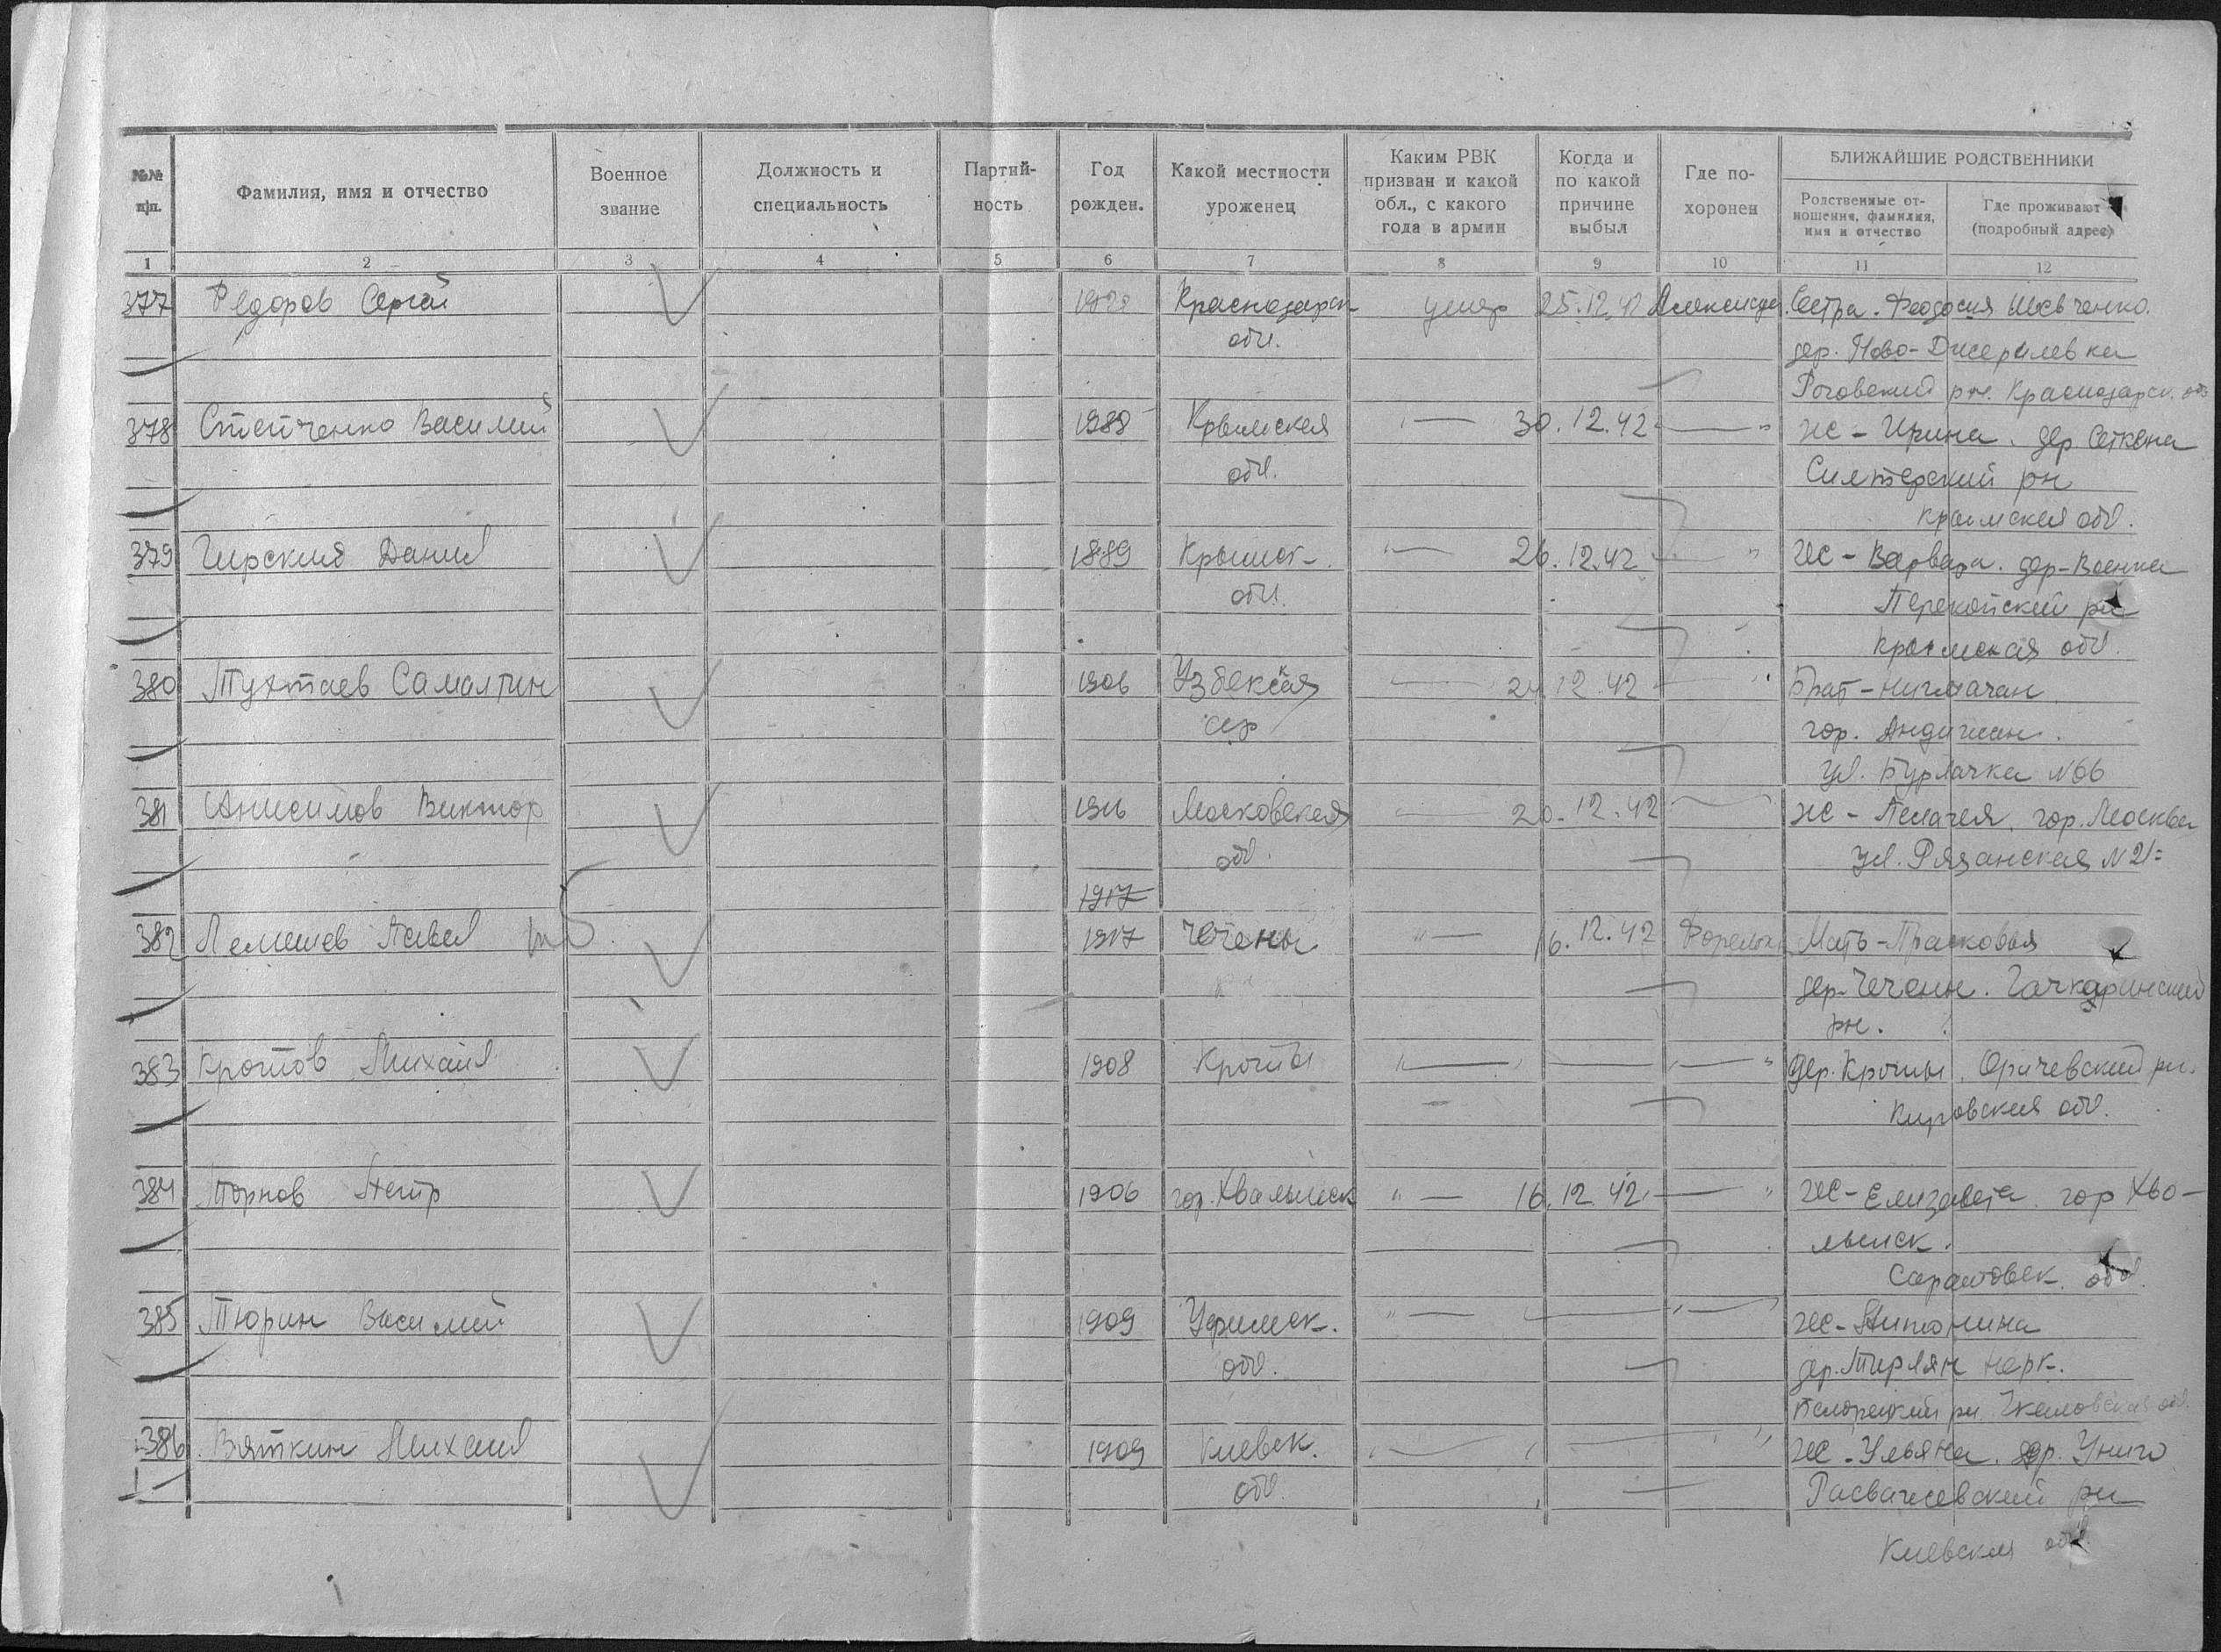 №№ п/п.
Фамилия, имя и отчество
Военное звание
Должность и специальность
Партий-ность
Год рожден.
Какой местности уроженец
Каким РВК призван и какой обл., с какого года в армии
Когда и по какой причине выбыл
Где по-хоронен
БЛИЖАЙШИЕ РОДСТВЕННИКИ
Родственные от-ношения, фамилия, имя и отчество
Где проживают (подробный адрес)
1 2 3 4 5 6 7 8 9 10 11 12
377 Федоров Сергей Краснодарск умер 25.12.42 Сестра. Феодосия Шевченко.
обл. дер. Ново-
Роговский рн. Краснодарск. обл
378 Степченко Василий Крымская " — 30.12.42 — " же - Ирина. дер
обл. рн
крымская обл.
379 Чирский Данил 1889 Крымск " — 26.12.42 — " же - Варвара. дер-Военка
обл. Перекопский рн
крымская обл.
380 Тухтаев 1906 Узбекская — 12.42 — " Брат -
сср гор. Андижан.
ул. N66
381 Анисимов Виктор Московская — 20.12.42 — же - Пелагея. гор. Москва
обл. ул. Рязанская N 21
1917
382 Лемешев Павел 1917 Чечены " — 16.12.42 Мать - Прасковья
дер-Чечени.
рн.
383 Кротов Михаил 1908 " — — " дер. Оричевский рн.
Кировская обл.
384 Петр 1906 гор. Хвалынск " — 16.12.42 — " же - Елизавета. гор Хво-
лынск.
Саратовск. обл.
385 Тюрин Василий 1909 Уфимск. " — — " — же - Антонина
обл. дер. Тирлян
рн Чкаловская обл
386 Вяткин Михаил 1909 Киевск. — — " же - Ульяна. дер.
обл. рн
Киевская обл.